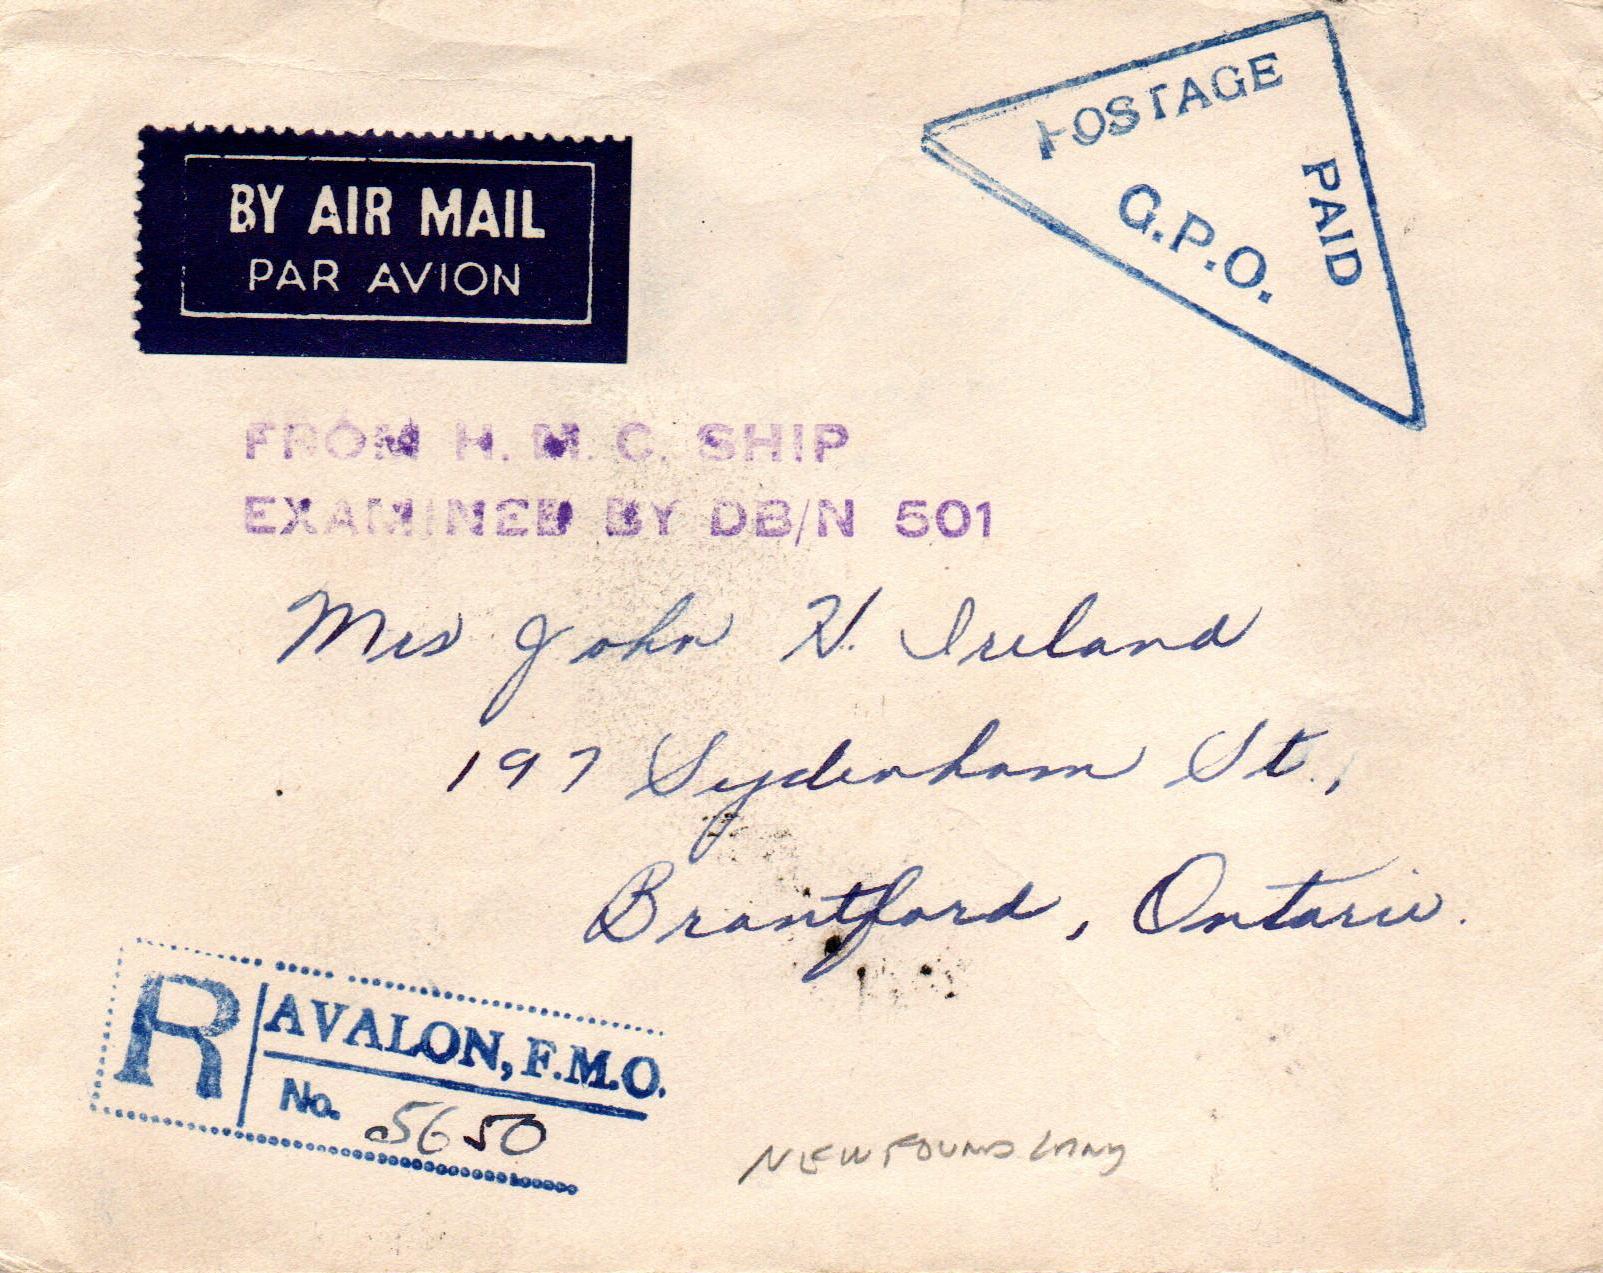 POSTAGE
PAID
G.P.O.
BY AIR MAIL
PAR AVION
FROM H. M. C. SHIP
EXAMINED BY DB/N 501
Mrs John H. Ireland
197 Sydenham St.,
Brantford, Ontario.
R AVALON, F.M.O.
No. 5650
NEWFOUNDLAND